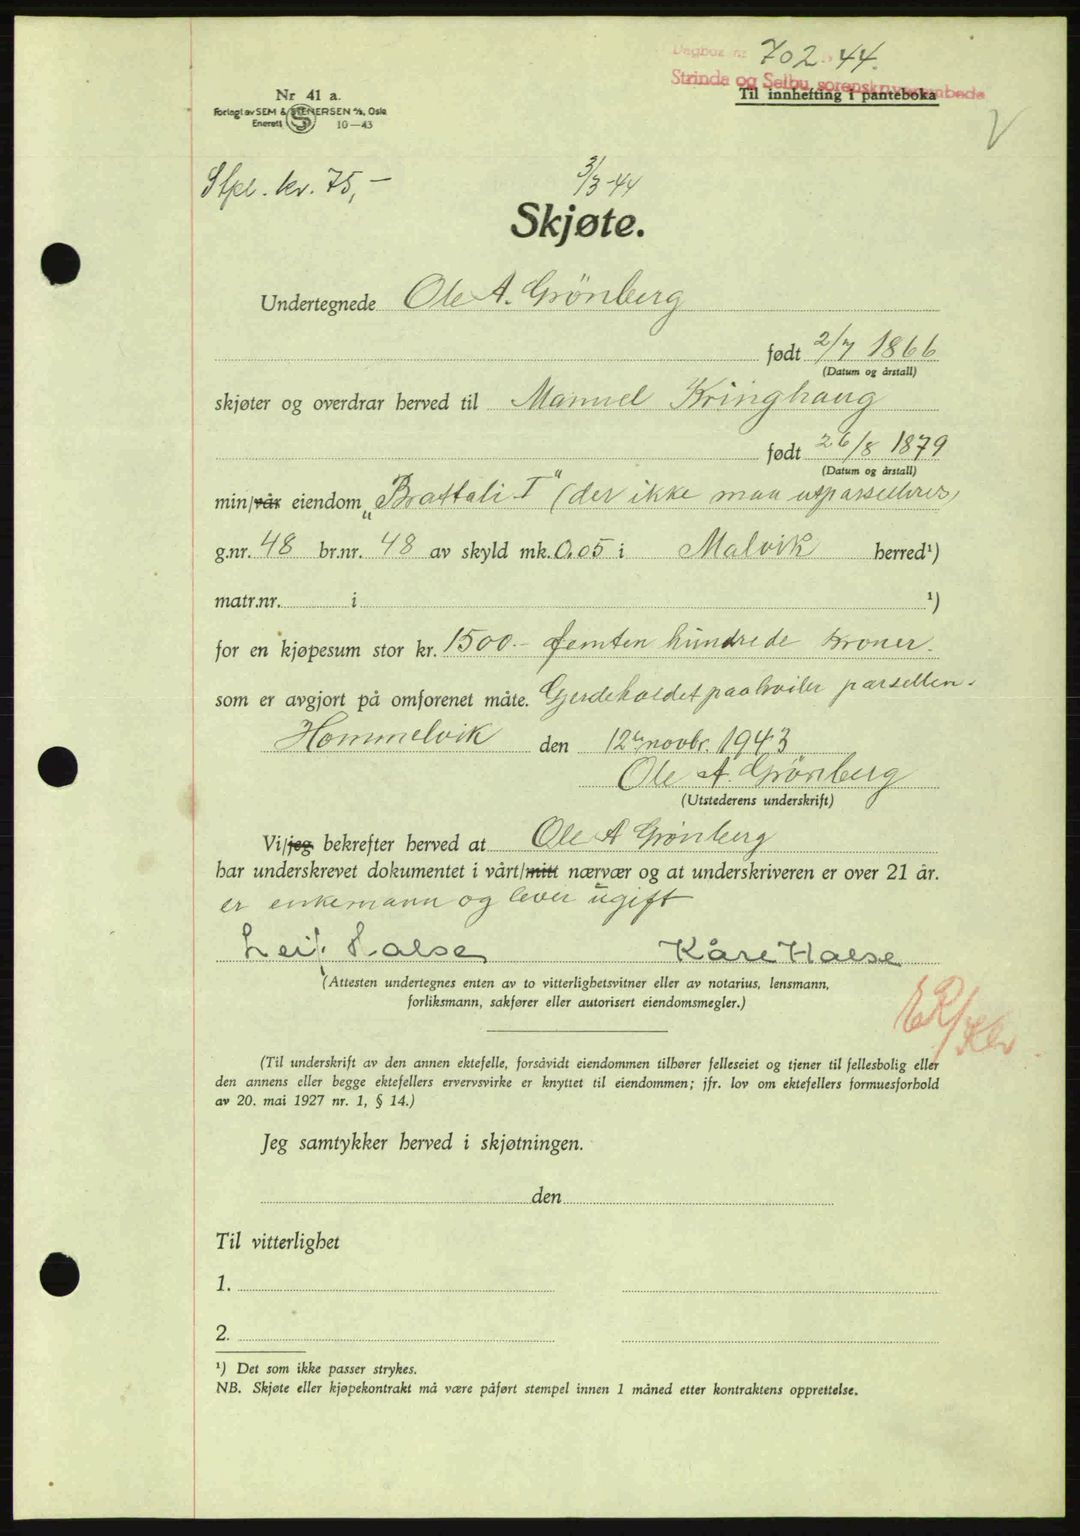 Dagbok nr 702 44.
Strinda og Selbu sorenskriverembede
Til innhefting i panteboka
Nr 41 a.
Forlagt av SEM & STENERSEN A/S, Oslo
Enerett 10—43
Stpl. kr. 75,— 3/3-44
Skjøte.
Undertegnede Ole A. Grönberg
født 2/7 1866
(Datum og årstall)
skjøter og overdrar herved til Manuel Kringhaug
født 26/8 1879
(Datum og årstall)
min/vår eiendom „Brattali I" (der ikke maa utparselleres)
g.nr. 48 br.nr. 48 av skyld mk. 0.05 i Malvik herred¹)
matr.nr. i ¹)
for en kjøpesum stor kr. 1500.- femten hundrede kroner.
som er avgjort på omforenet måte. Gjerdeholdet paahviler parsellen.
Hommelvik den 12 novbr. 1943
Ole A. Grönberg
(Utstederens underskrift)
Vi/jeg bekrefter herved at Ole A Grönberg
har underskrevet dokumentet i vårt/mitt nærvær og at underskriveren er over 21 år.
er enkemann og lever ugift
Leif Halse Kåre Halse
(Attesten undertegnes enten av to vitterlighetsvitner eller av notarius, lensmann,
forliksmann, sakfører eller autorisert eiendomsmegler.)
ER/Kb
(Til underskrift av den annen ektefelle, forsåvidt eiendommen tilhører felleseiet og tjener til fellesbolig eller
den annens eller begge ektefellers ervervsvirke er knyttet til eiendommen; jfr. lov om ektefellers formuesforhold
av 20. mai 1927 nr. 1, § 14.)
Jeg samtykker herved i skjøtningen.
den
Til vitterlighet
1.
2.
¹) Det som ikke passer strykes.
NB. Skjøte eller kjøpekontrakt må være påført stempel innen 1 måned etter kontraktens opprettelse.